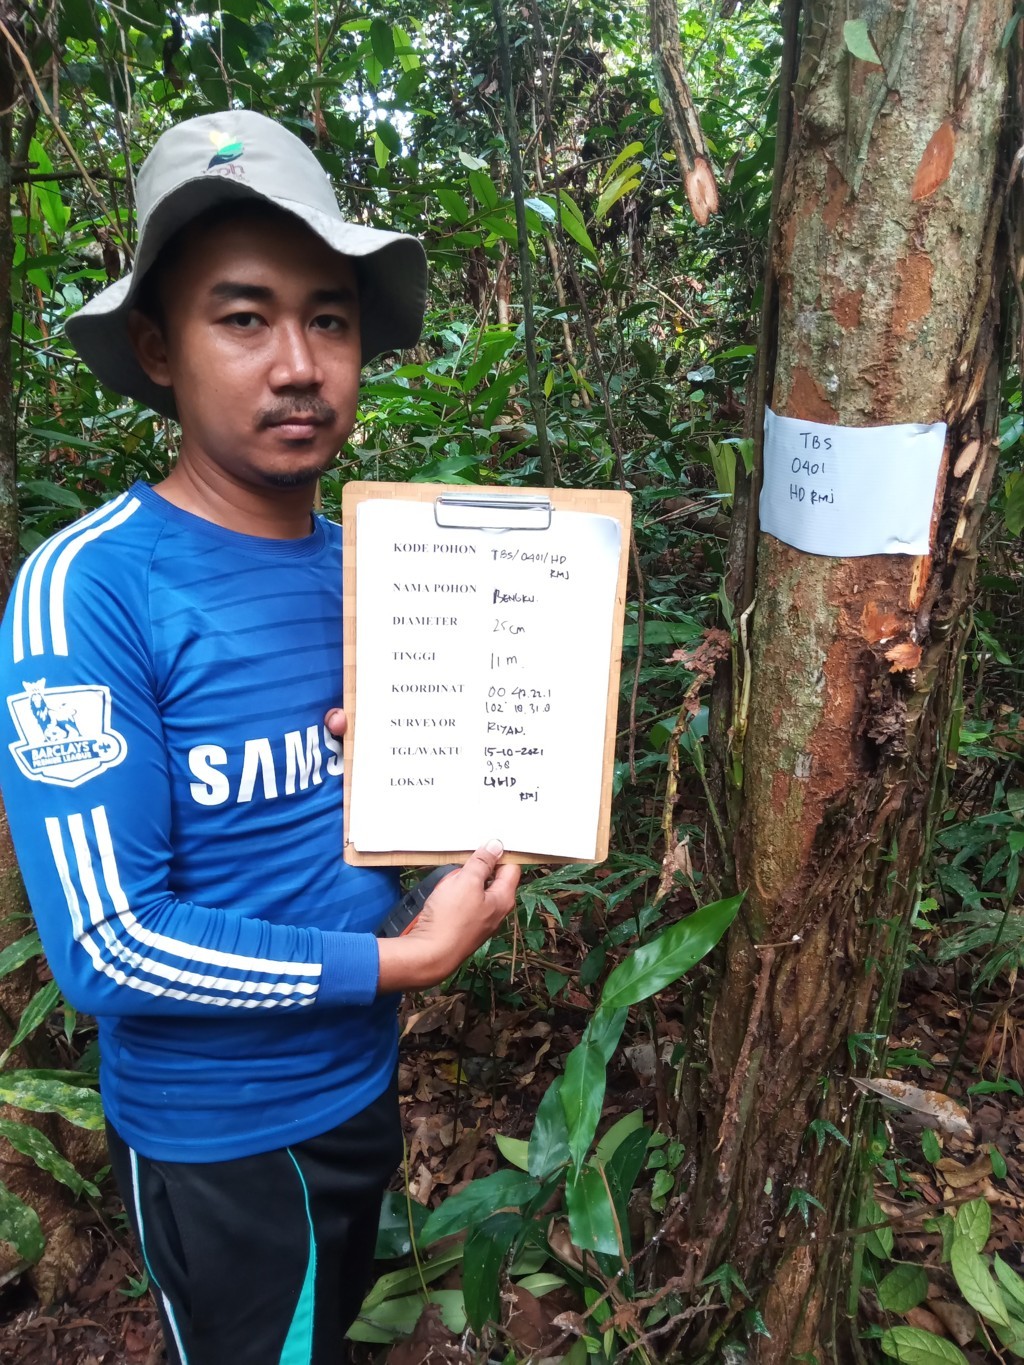 BARCLAYS
PREMIER LEAGUE
SAMS
KODE POHON TBS/0401/HD
RMJ
NAMA POHON BENGKU.
DIAMETER 25 cm
TINGGI 11 m.
KOORDINAT 00 42.22.1
102° 18.31.0
SURVEYOR RIYAN.
TGL/WAKTU 15-10-2021
9.38
LOKASI
RMJ
TBS
0401
HD RMJ